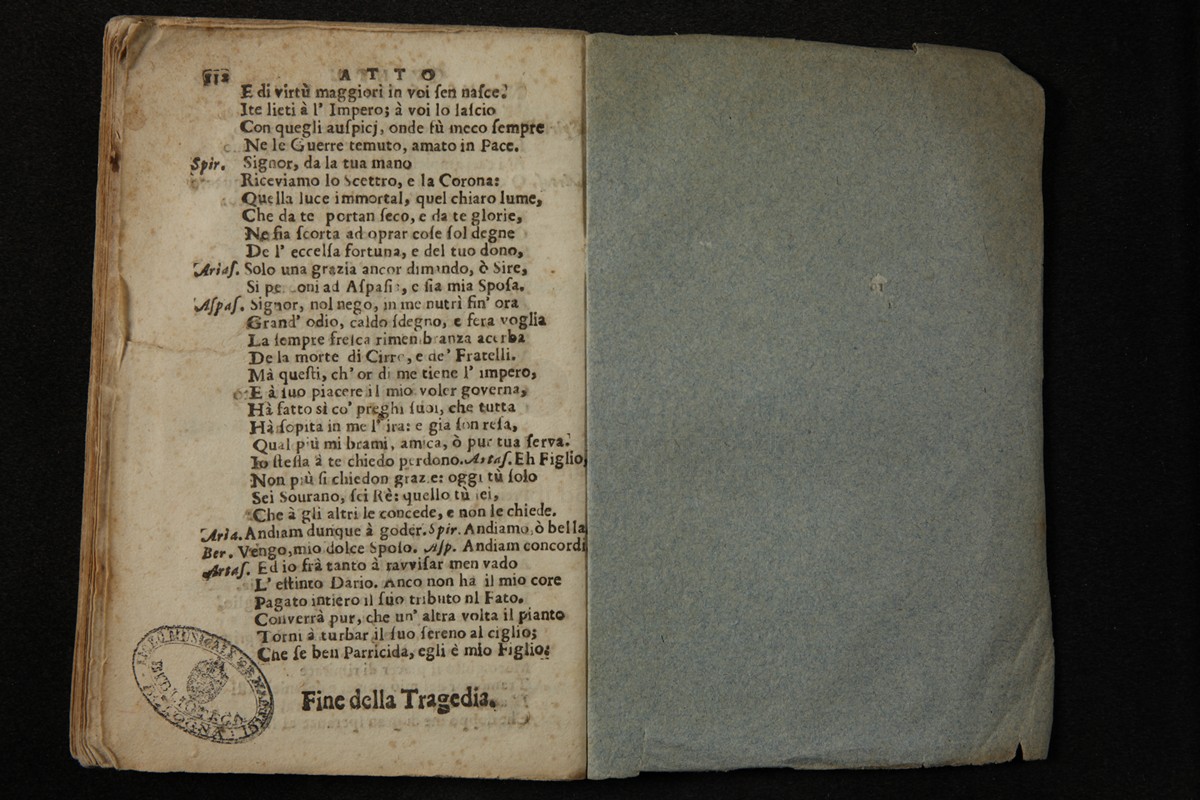 112 ATTO
E di virtù maggiori in voi ſen naſce.
Ite lieti à l' Impero; à voi lo laſcio
Con quegli auſpicj, onde fù meco ſempre
Ne le Guerre temuto, amato in Pace.
Spir. Signor, da la tua mano
Riceviamo lo Scettro, e la Corona:
Quella luce immortal, quel chiaro lume,
Che da te portan ſeco, e da te glorie,
Ne ſia ſcorta ad oprar coſe ſol degne
De l' eccelſa fortuna, e del tuo dono,
Ariaſ. Solo una grazia ancor dimando, ò Sire,
Si perdoni ad Aſpaſia, e ſia mia Spoſa.
Aſpaſ. Signor, nol nego, in me nutrì fin' ora
Grand' odio, caldo ſdegno, e fera voglia
La ſempre freſca rimembranza acerba
De la morte di Cirro, e de' Fratelli.
Mà queſti, ch' or di me tiene l' impero,
E à ſuo piacere il mio voler governa,
Hà fatto sì co' preghi ſuoi, che tutta
Hà ſopita in me l' ira: e gia ſon reſa,
Qual più mi brami, amica, ò pur tua ſerva.
Io ſteſſa à te chiedo perdono. Artaſ. Eh Figlio,
Non più ſi chiedon grazie: oggi tù ſolo
Sei Sourano, ſei Rè: quello tù ſei,
Che à gli altri le concede, e non le chiede.
Aria. Andiam dunque à goder. Spir. Andiamo, ò bella
Ber. Vengo, mio dolce Spoſo. Aſp. Andiam concordi
Artaſ. Ed io frà tanto à ravviſar men vado
L' eſtinto Dario. Anco non ha il mio core
Pagato intiero il ſuo tributo nl Fato.
Converrà pur, che un' altra volta il pianto
Torni à turbar il ſuo ſereno al ciglio;
Che ſe ben Parricida, egli è mio Figlio.
Fine della Tragedia.
LICEO MUSICALE
BIBLIOTECA
BOLOGNA